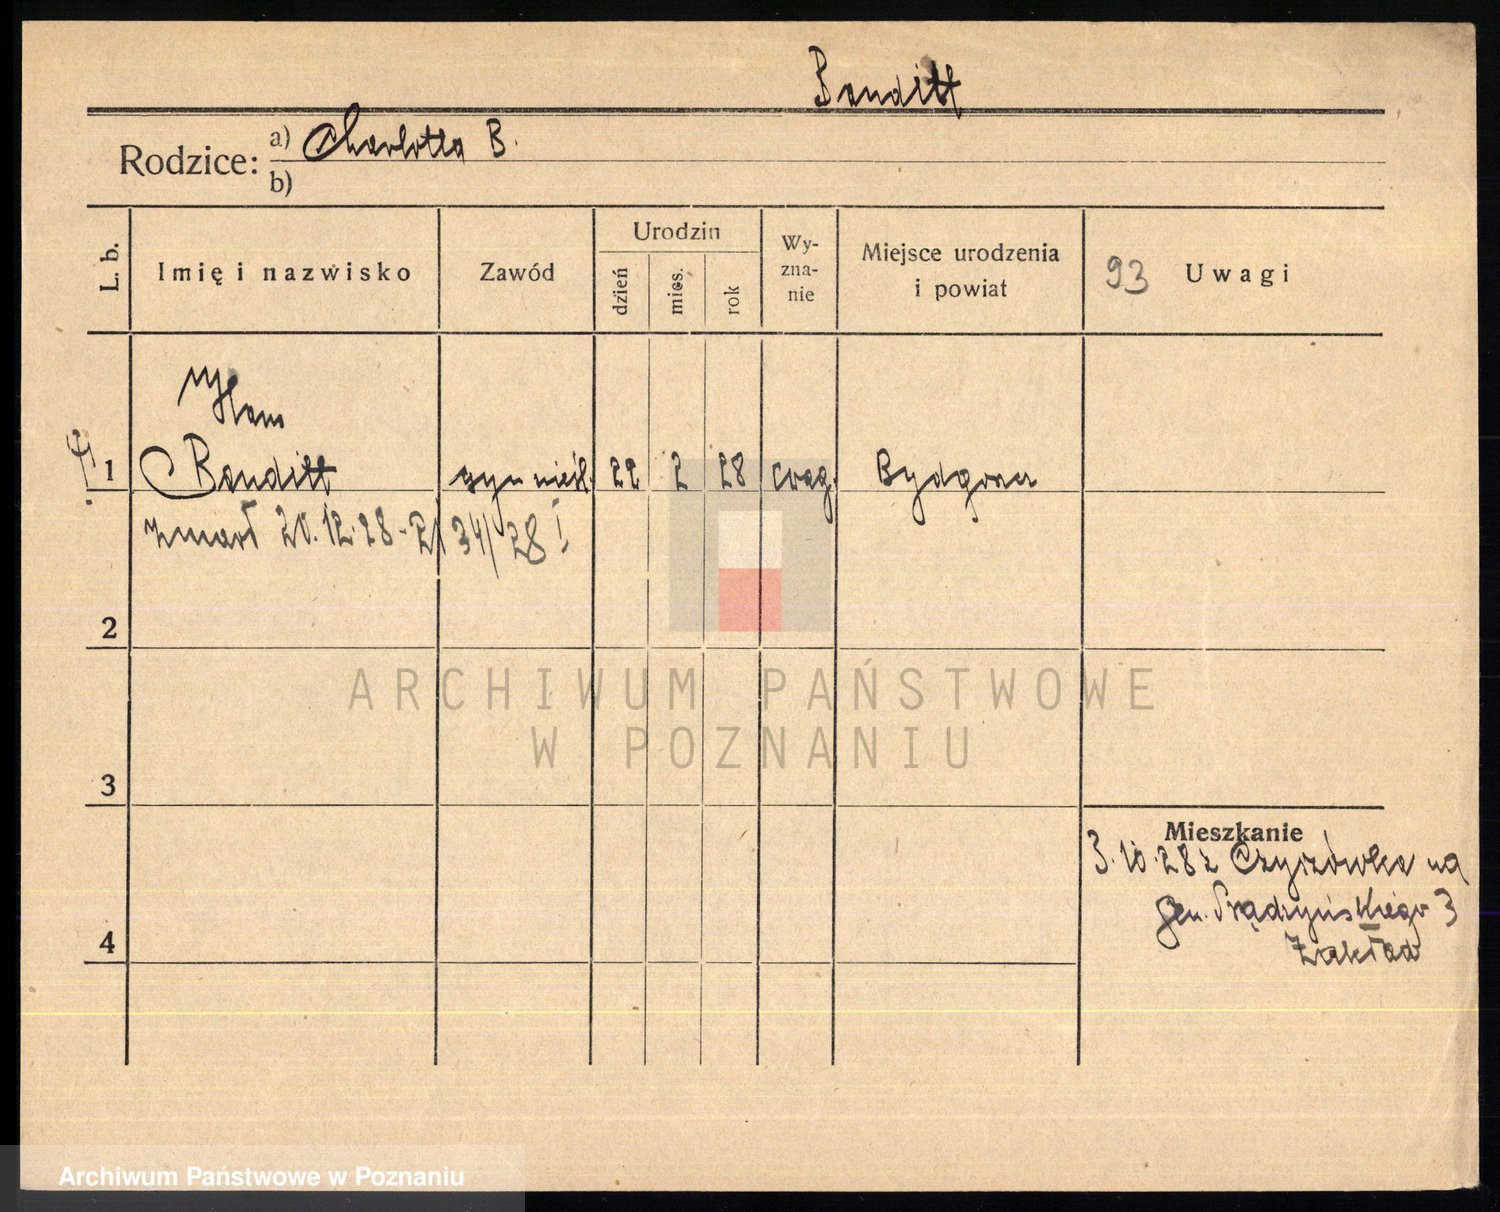 Banditt
Rodzice: a) Charlotta B.
b)
L. b.
Imię i nazwisko
Zawód
Urodzin
dzień
mies.
rok
Wy-
zna-
nie
Miejsce urodzenia
i powiat
93 Uwagi
1 Banditt syn nieśl. 22 2 28 ewag. Bydgoszcz
zmarł 20.12.28 - 34/28 I
2
3
4
Mieszkanie
3.10.28 z Czyżówka na
gen. Prądzyńskiego 3
Zakład
ARCHIWUM PAŃSTWOWE
W POZNANIU
Archiwum Państwowe w Poznaniu